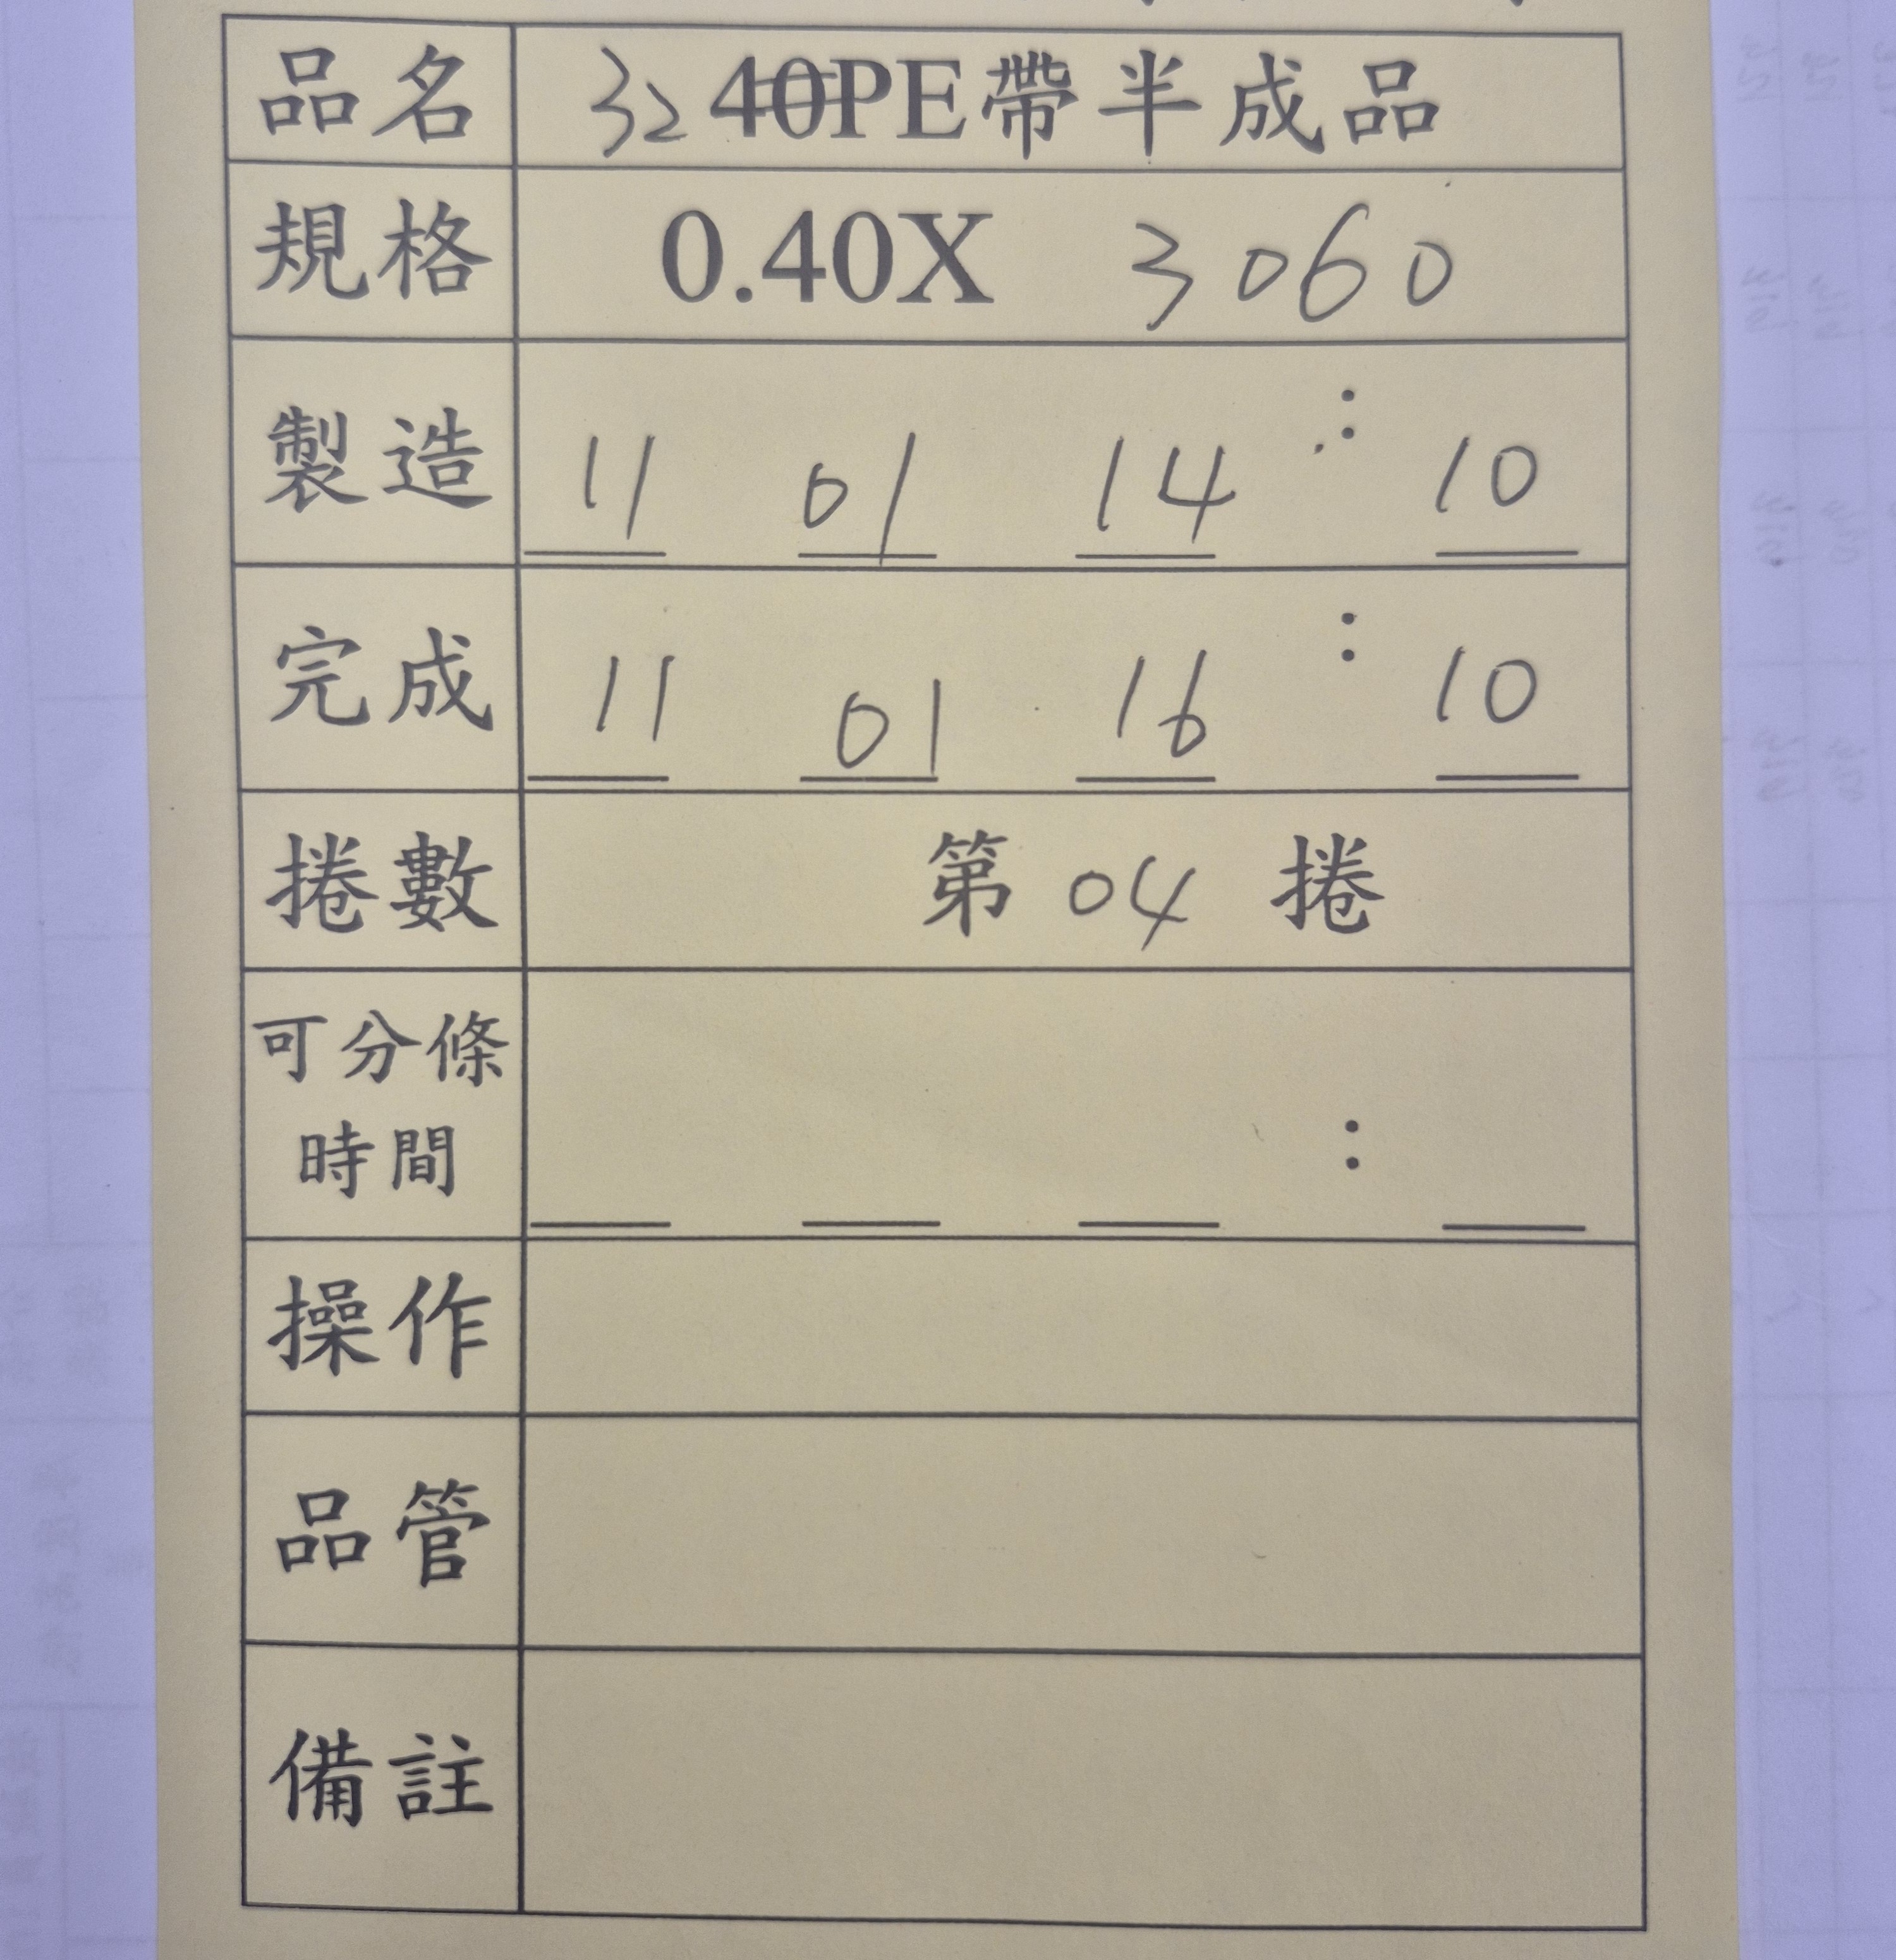 品名 32 40PE帶半成品
規格 0.40X 3060
製造 11 01 14 : 10
完成 11 01 16 : 10
捲數 第 04 捲
可分條
時間 :
操作
品管
備註